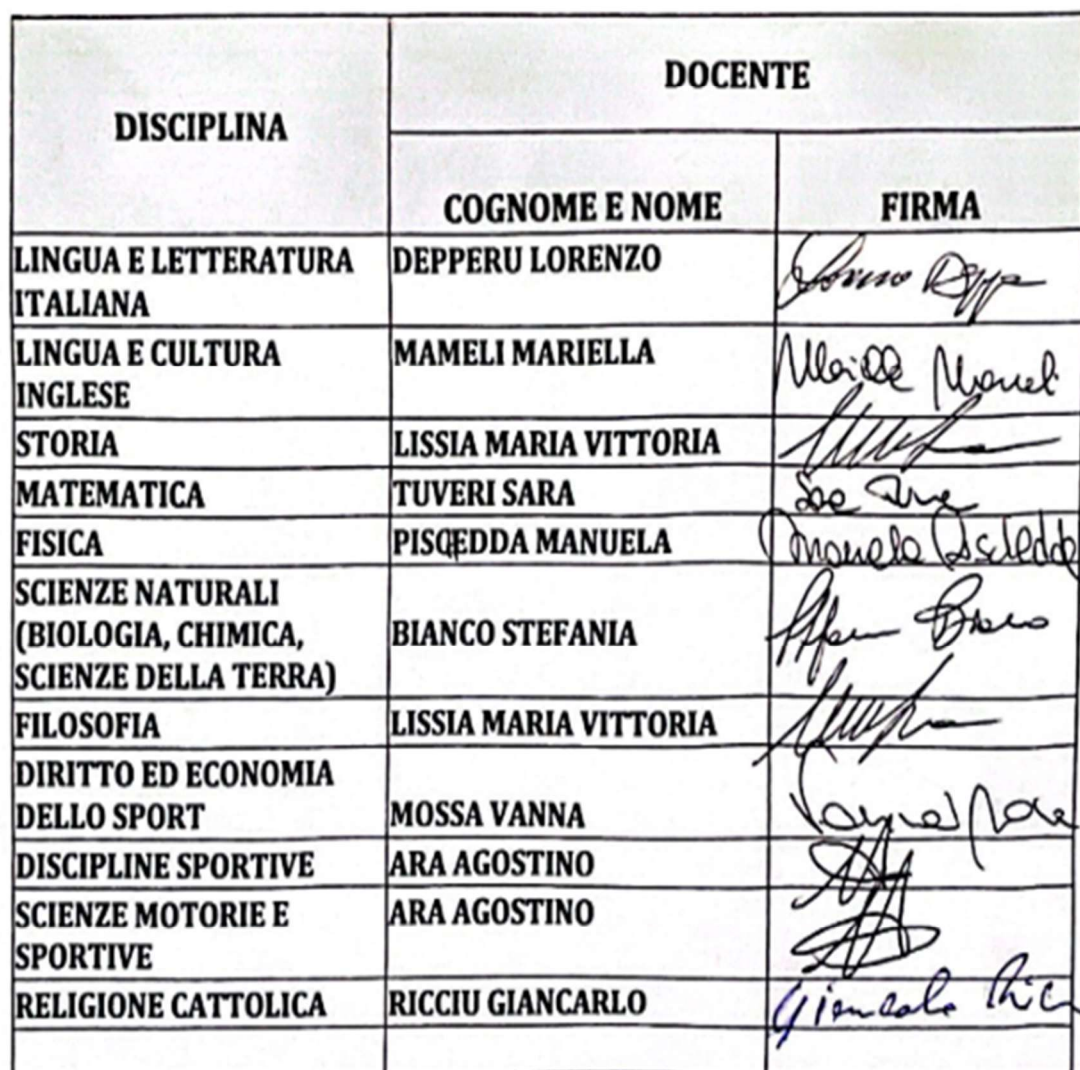 DISCIPLINA
DOCENTE
COGNOME E NOME
FIRMA
LINGUA E LETTERATURA
ITALIANA
DEPPERU LORENZO
LINGUA E CULTURA
INGLESE
MAMELI MARIELLA
Mariella Mameli
STORIA
LISSIA MARIA VITTORIA
MATEMATICA
TUVERI SARA
FISICA
PISCEDDA MANUELA
Manuela Piscedda
SCIENZE NATURALI
(BIOLOGIA, CHIMICA,
SCIENZE DELLA TERRA)
BIANCO STEFANIA
FILOSOFIA
LISSIA MARIA VITTORIA
DIRITTO ED ECONOMIA
DELLO SPORT
MOSSA VANNA
DISCIPLINE SPORTIVE
ARA AGOSTINO
SCIENZE MOTORIE E
SPORTIVE
ARA AGOSTINO
RELIGIONE CATTOLICA
RICCIU GIANCARLO